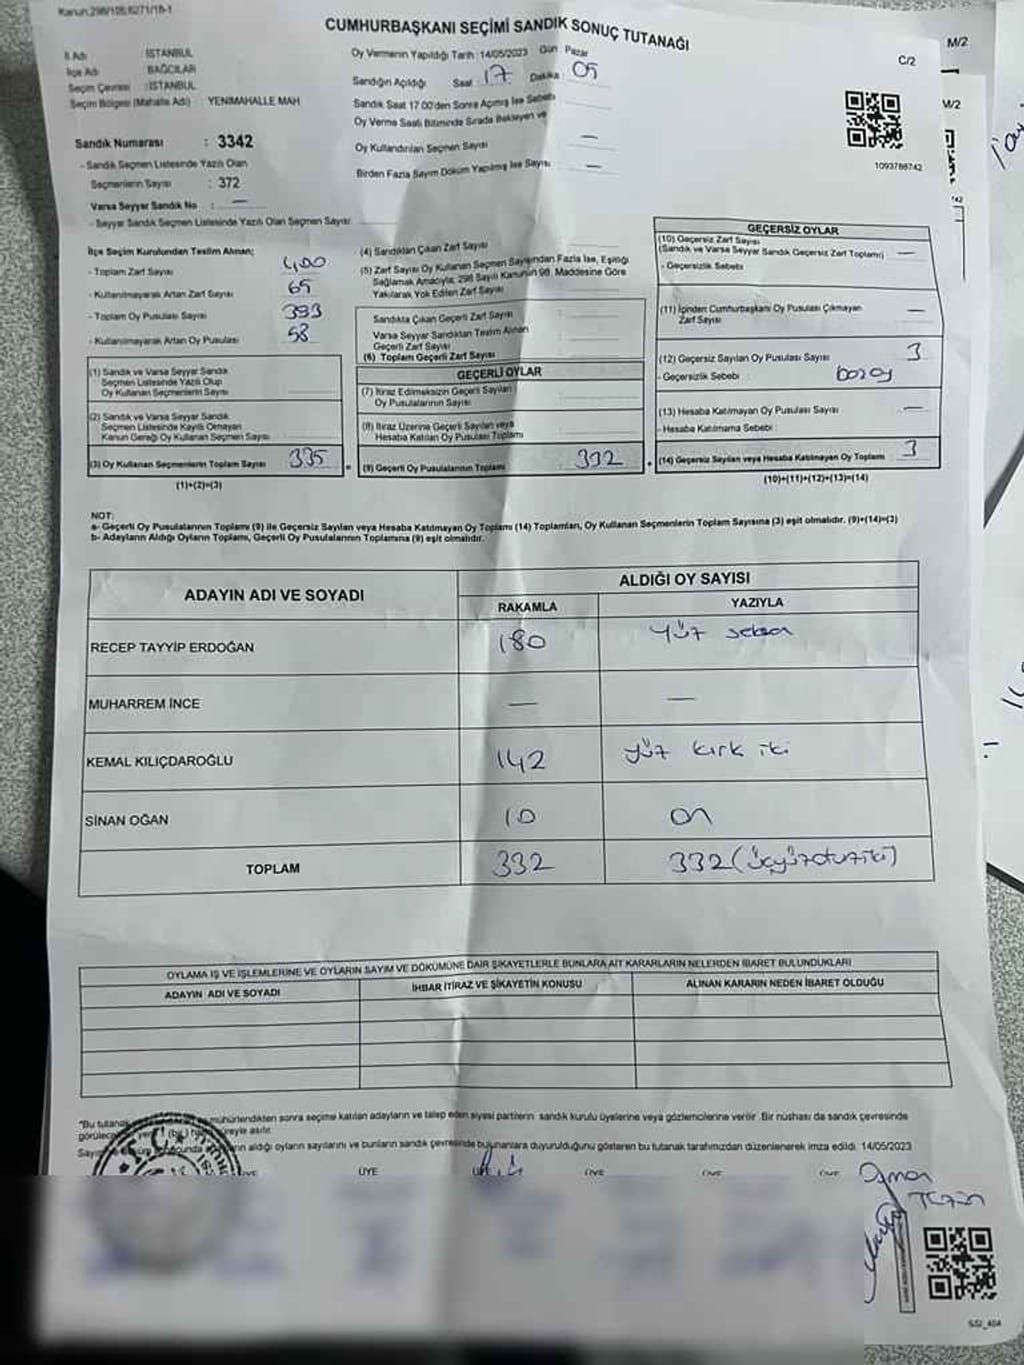 Kanun:298/105,6271/16-1
CUMHURBAŞKANI SEÇİMİ SANDIK SONUÇ TUTANAĞI
M/2
C/2
İl Adı : İSTANBUL
İlçe Adı : BAĞCILAR
Seçim Çevresi : İSTANBUL
Seçim Bölgesi (Mahalle Adı) : YENİMAHALLE MAH.
Oy Vermenin Yapıldığı Tarih :14/05/2023 Gün Pazar
Sandığın Açıldığı Saat 17 Dakika 05
Sandık Saat 17:00'den Sonra Açılmış İse Sebebi
Oy Verme Saati Bitiminde Sırada Bekleyen ve
Oy Kullandırılan Seçmen Sayısı —
Birden Fazla Sayım Döküm Yapılmış İse Sayısı —
M/2
1093786742
Sandık Numarası : 3342
- Sandık Seçmen Listesinde Yazılı Olan
Seçmenlerin Sayısı : 372
Varsa Seyyar Sandık No : —
- Seyyar Sandık Seçmen Listesinde Yazılı Olan Seçmen Sayısı:
İlçe Seçim Kurulundan Teslim Alınan;
- Toplam Zarf Sayısı 400
- Kullanılmayarak Artan Zarf Sayısı 65
- Toplam Oy Pusulası Sayısı 393
- Kullanılmayarak Artan Oy Pusulası 58
(1) Sandık ve Varsa Seyyar Sandık
Seçmen Listesinde Yazılı Olup
Oy Kullanan Seçmenlerin Sayısı
(2) Sandık ve Varsa Seyyar Sandık
Seçmen Listesinde Kayıtlı Olmayan
Kanun Gereği Oy Kullanan Seçmen Sayısı
(3) Oy Kullanan Seçmenlerin Toplam Sayısı 335
(1)+(2)=(3)
(4) Sandıktan Çıkan Zarf Sayısı
(5) Zarf Sayısı Oy Kullanan Seçmen Sayısından Fazla İse, Eşitliği
Sağlamak Amacıyla, 298 Sayılı Kanunun 98. Maddesine Göre
Yakılarak Yok Edilen Zarf Sayısı
Sandıkta Çıkan Geçerli Zarf Sayısı
Varsa Seyyar Sandıktan Teslim Alınan
Geçerli Zarf Sayısı
(6) Toplam Geçerli Zarf Sayısı
GEÇERLİ OYLAR
(7) İtiraz Edilmeksizin Geçerli Sayılan
Oy Pusulalarının Sayısı
(8) İtiraz Üzerine Geçerli Sayılan veya
Hesaba Katılan Oy Pusulası Toplamı
(9) Geçerli Oy Pusulalarının Toplamı 332
GEÇERSİZ OYLAR
(10) Geçersiz Zarf Sayısı
(Sandık ve Varsa Seyyar Sandık Geçersiz Zarf Toplamı) —
- Geçersizlik Sebebi :
(11) İçinden Cumhurbaşkanı Oy Pusulası Çıkmayan
Zarf Sayısı —
(12) Geçersiz Sayılan Oy Pusulası Sayısı 3
- Geçersizlik Sebebi :
(13) Hesaba Katılmayan Oy Pusulası Sayısı —
- Hesaba Katılmama Sebebi :
(14) Geçersiz Sayılan veya Hesaba Katılmayan Oy Toplamı 3
(10)+(11)+(12)+(13)=(14)
NOT:
a- Geçerli Oy Pusulalarının Toplamı (9) ile Geçersiz Sayılan veya Hesaba Katılmayan Oy Toplamı (14) Toplamları, Oy Kullanan Seçmenlerin Toplam Sayısına (3) eşit olmalıdır. (9)+(14)=(3)
b- Adayların Aldığı Oyların Toplamı, Geçerli Oy Pusulalarının Toplamına (9) eşit olmalıdır.
ADAYIN ADI VE SOYADI ALDIĞI OY SAYISI
RAKAMLA YAZIYLA
RECEP TAYYİP ERDOĞAN 180 yüz seksen
MUHARREM İNCE — —
KEMAL KILIÇDAROĞLU 142 yüz kırk iki
SİNAN OĞAN 10 on
TOPLAM 332 332 (üçyüzotuziki)
OYLAMA İŞ VE İŞLEMLERİNE VE OYLARIN SAYIM VE DÖKÜMÜNE DAİR ŞİKAYETLERLE BUNLARA AİT KARARLARIN NELERDEN İBARET BULUNDUKLARI
ADAYIN ADI VE SOYADI İHBAR İTİRAZ VE ŞİKAYETİN KONUSU ALINAN KARARIN NEDEN İBARET OLDUĞU
"Bu tutanak mühürlendikten sonra seçime katılan adayların ve talep eden siyasi partilerin sandık kurulu üyelerine veya gözlemcilerine verilir. Bir nüshası da sandık çevresinde
görülecek yere asılır.
aldığı oyların sayılarını ve bunların sandık çevresinde bulunanlara duyurulduğunu gösteren bu tutanak tarafımızdan düzenlenerek imza edildi. 14/05/2023
ÜYE